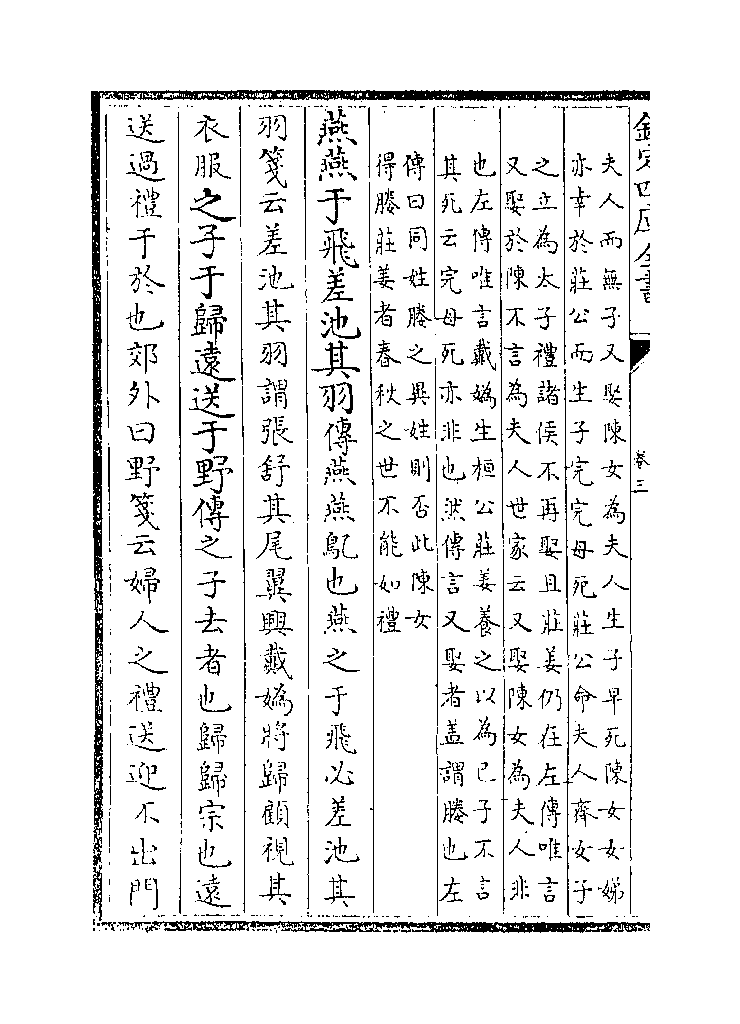 欽定四庫全書
卷三
夫人而無子又娶陳女為夫人生子早死陳女女娣
亦幸於莊公而生子完完母死莊公命夫人齊女子
之立為太子禮諸侯不再娶且莊姜仍在左傳唯言
又娶於陳不言為夫人世家云又娶陳女為夫人非
也左傳唯言戴媯生桓公莊姜養之以為已子不言
其死云完母死亦非也然傳言又娶者盖謂媵也左
傳曰同姓媵之異姓則否此陳女
得媵莊姜者春秋之世不能如禮
燕燕于飛差池其羽傳燕燕鳦也燕之于飛必差池其
羽箋云差池其羽謂張舒其尾翼興戴媯將歸顧視其
衣服之子于歸遠送于野傳之子去者也歸歸宗也遠
送過禮于於也郊外曰野箋云婦人之禮送迎不出門